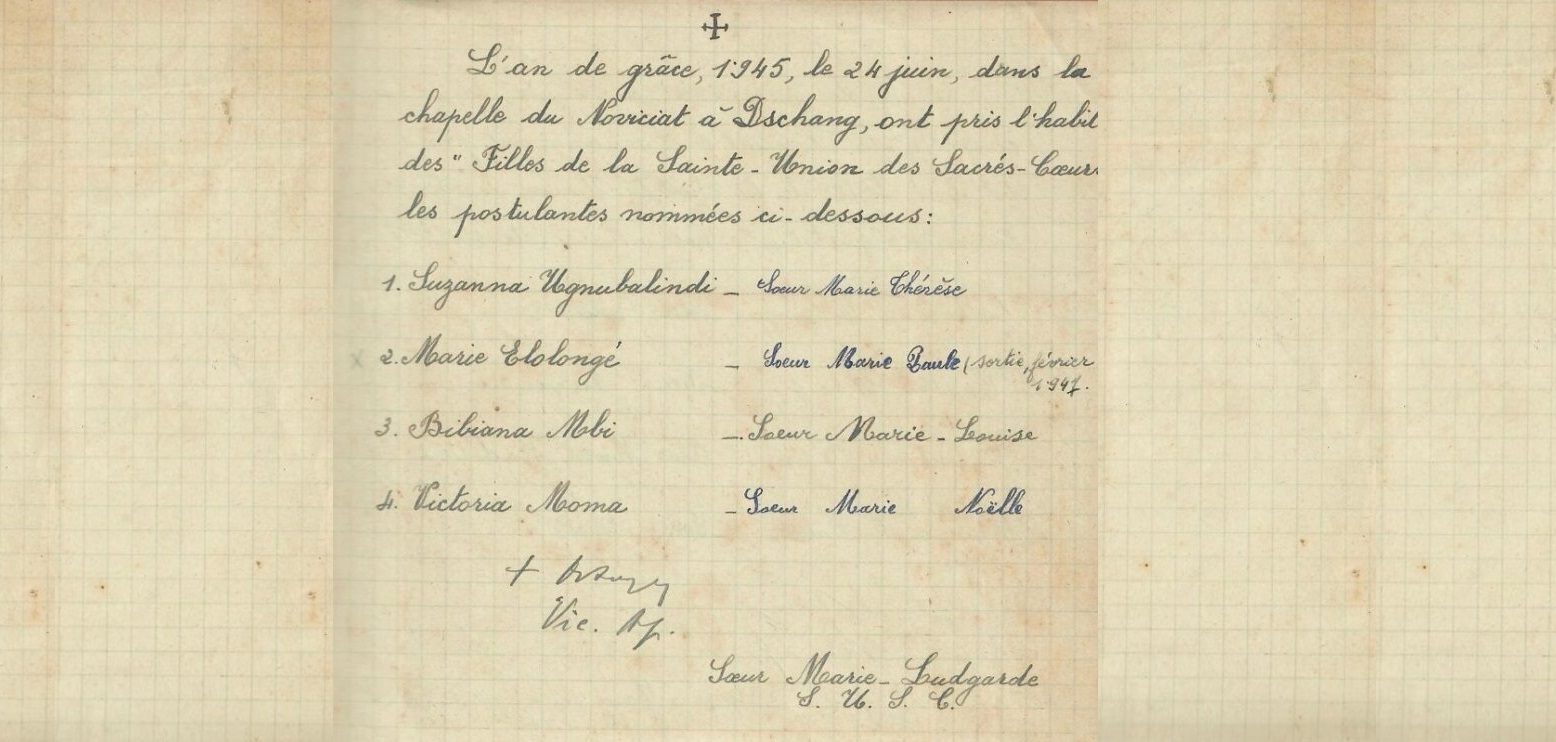 L'an de grâce, 1945, le 24 juin, dans la
chapelle du Noviciat à Dschang, ont pris l'habit
des " Filles de la Sainte - Union des Sacrés - Cœurs
les postulantes nommées ci-dessous:
1. Suzanna Ugnubalindi - Sœur Marie Thérèse
2. Marie Elolongé - Soeur Marie Paule (sortie, février
1947.
3. Bibiana Mbi - Soeur Marie - Louise
4. Victoria Moma - Soeur Marie Noëlle
+
Vic. Ap.
Sœur Marie - Ludgarde
S. U. S. C.